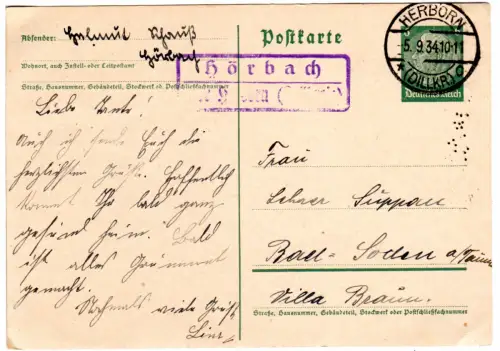 Absender: Helmut Schauß
Hörbach
Wohnort, auch Zustell- oder Leitpostamt
Straße, Hausnummer, Gebäudeteil, Stockwerk od. Postschließfachnummer
Postkarte
Deutsches Reich
HERBORN
-5.9.34.10-11
* (DILLKR.)
Hörbach
Liebe Tante!
Auch ich sende Euch die
herzlichsten Grüße. Hoffentlich
kommt Ihr bald ganz
gesund heim. Bald
ist alles Grummet
gemacht.
Nochmals viele Grüße
Frau
Suppan
Bad-Soden a/Taunus
Villa Braun.
Straße, Hausnummer, Gebäudeteil, Stockwerk oder Postschließfachnummer